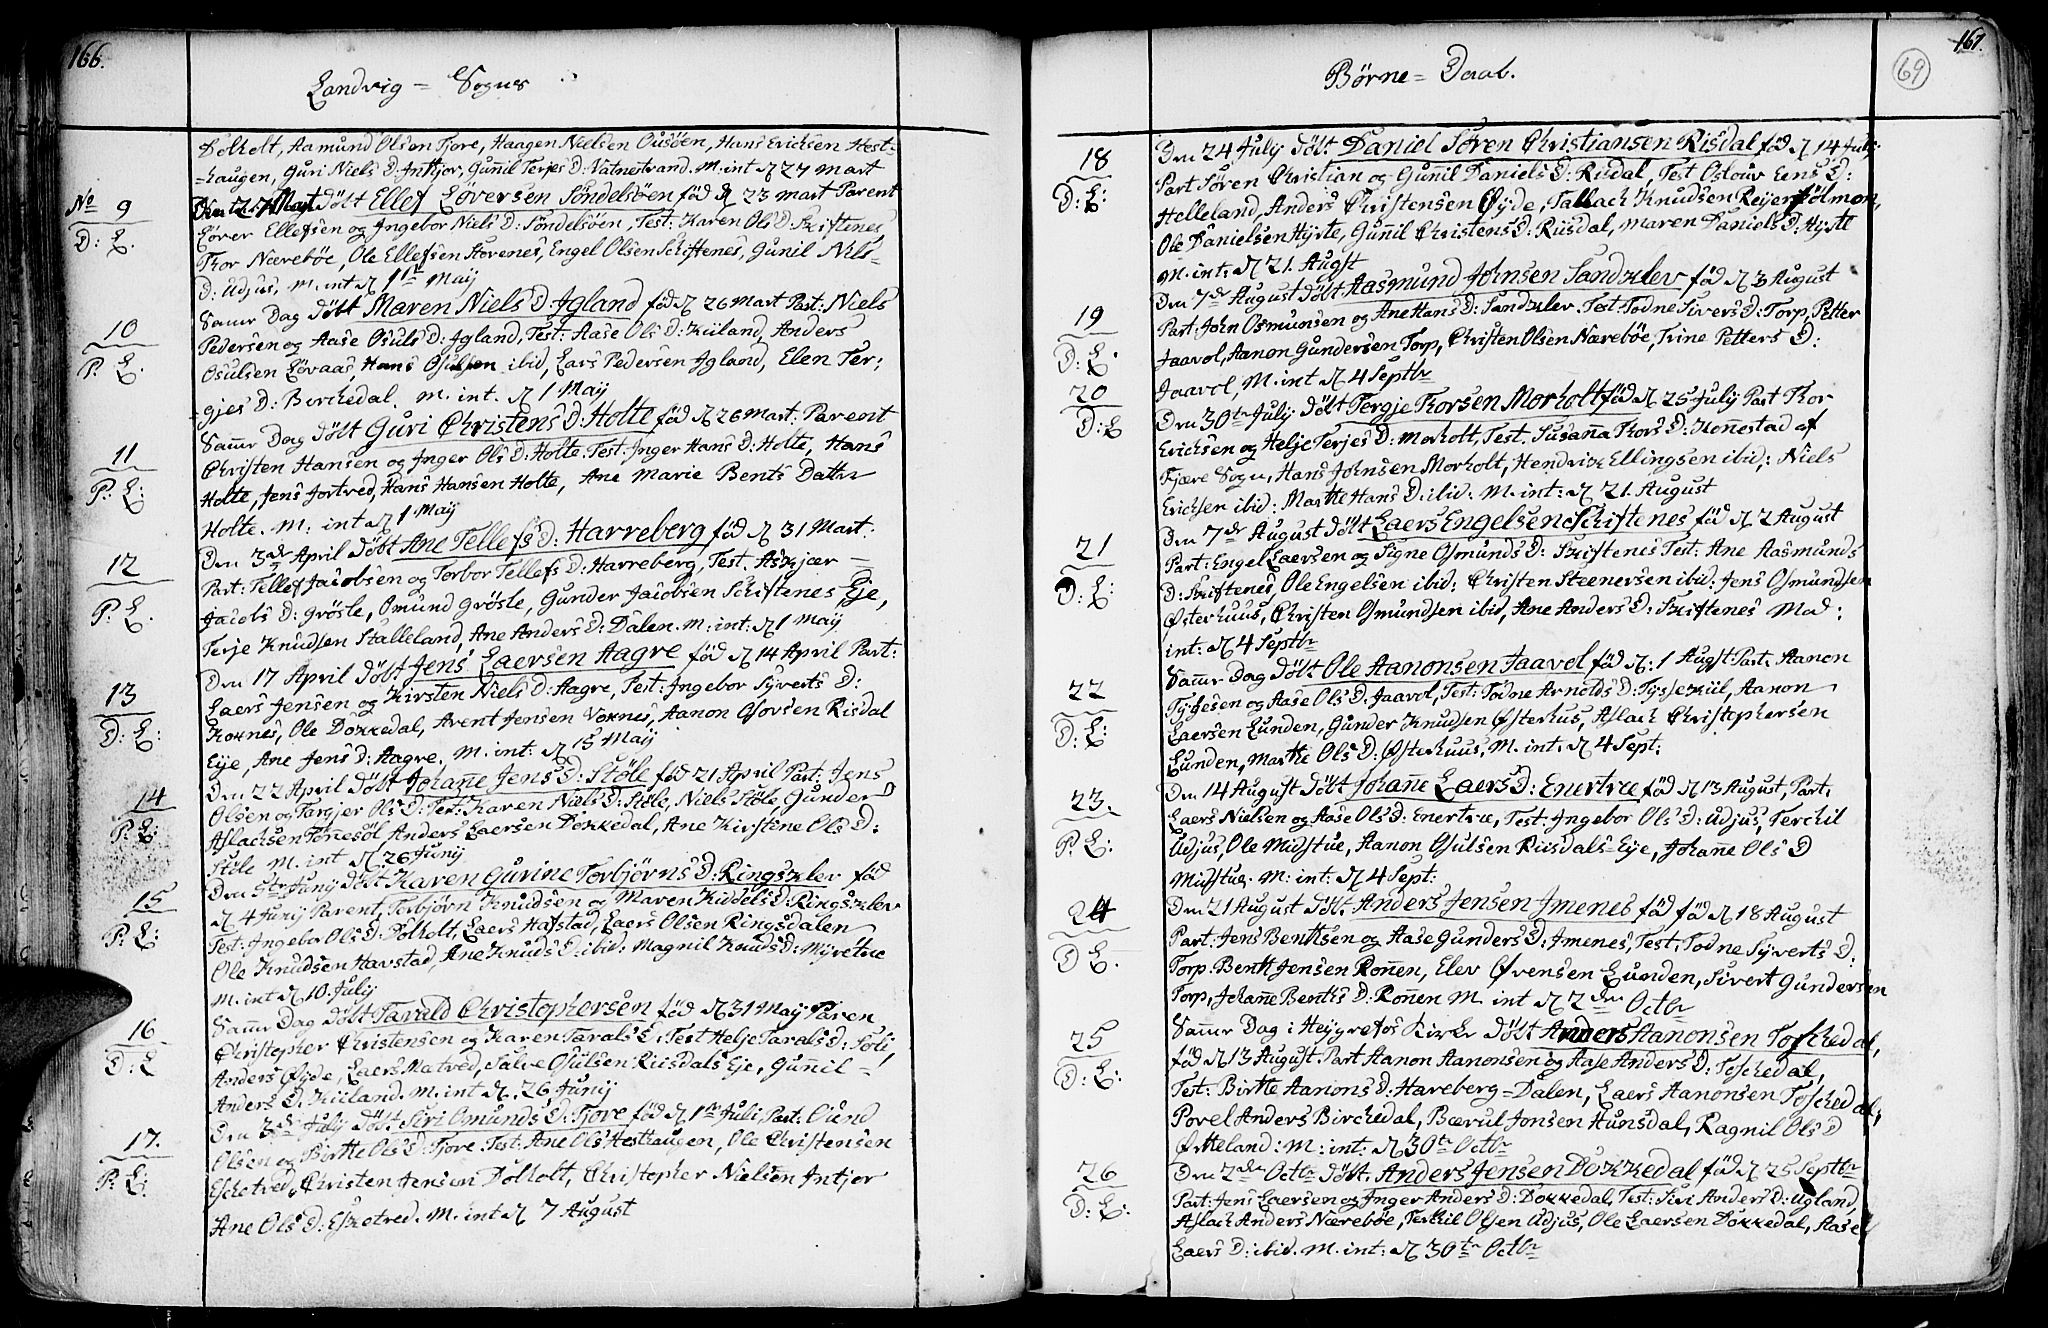 166.
Landvig = Sogns
Dolholt, Aamund Olsen Fjore, Haagen Nielsen Ousöen, Hans Erichsen Hest=
=haugen, Guri Niels D: Intkjør, Guñil Terjes D: Vatnestrand. M. int 27 Mart
No 9
D: L.
Den 27 Mart Döbt Ellef Löversen Söndelsöen föd 23 Mart Parent
Löver Ellefsen og Ingebor Niels D: Söndelsöen, Test: Karen Ols D: Skiftenes
Thor Næreböe, Ole Ellefsen Hovenes, Engel Olsen Skiftenes, Gunil Nils=
D: Udjus, M. int 11te May
10
P: L.
Same Dag Döbt Maren Niels D: Igland föd 26 Mart Part: Niels
Pedersen og Aase Osuls D: Igland, Test: Aase Ols D: Kiiland, Anders
Osulsen Lövaas, Hans Osulsen ibid, Lars Pedersen Igland, Elen Ter:
=gjes D: Birchedal. M. int. 1 May
11
P: L:
Same Dag Döbt Guri Christens D: Holte föd 26 Mart: Parent
Christen Hansen og Inger Ols D: Holte. Test: Inger Hans D: Holte, Hans
Holte, Jens Jortved, Hans Hansen Holte, Ane Marie Bents Datter
Holte. M. int 1 May
12
P: L.
Den 3de April Döbt Ane Tellefs D: Harreberg föd 31 Mart:
Part: Tellef Jacobsen og Torbor Tellefs D: Harreberg, Test. Askjær
Jacobs D: Grösle, Omund Grösle, Gunder Jacobsen Skiftenes Eje,
Terje Knudsen Stalleland, Ane Anders D: Dalen. M: int: 1 May
13
D: L:
Den 17 April Döbt Jens Laersen Aagre föd 14 April Part:
Laers Jensen og Kirsten Niels D: Aagre, Test: Ingebor Syverts D:
Koknes, Ole Dokkedal, Arent Jensen Voknes, Aanon Osovsen Risdal
Eije, Ane Jens D: Aagre. M. int: 15 May
14
P: L:
Den 22 April Döbt Johañe Jens D: Stöle föd 21 April Part: Jens
Olsen og Targjer Ols D: Test: Karen Niels D: Stöle, Niels Stöle, Gunder
Aslachsen Tönesöl, Anders Laersen Dokkedal, Ane Kirstene Ols D:
Stöle M. int 26 Junij
15
P: L:
Den 5te Junij Döbt Karen Gurine Torbjörns D: Ringsklev föd
4 Junij Parent, Torbjörn Knudsen og Maren Kiddels D: Ringsklev
Test: Ingebor Ols D: Dolholt, Laers Hafstad, Laers Olsen Ringsdalen
Ole Knudsen Havstad, Ane Knuds D: ibid: Magnil Knuds D: Myretue
M. int 10. Julij
16
D: L
Same Dag Döbt Tarald Christophersen föd 31 May Paren
Christopher Christensen og Karen Tarals D: Test Helje Tarals D: Soli,
Anders Øyde, Laers Metved, Salve Osulsen Riisdals Eje, Guñil =
Anders D. Kiiland. M. int 26 Junij
17.
P: L:
Den 3de Julij Döbt Siri Omunds D: Fjore föd 1te Juli, Part: Ound
Olsen og Birthe Ols D: Fjore. Test: Ane Ols Hesthaugen, Ole Christensen
Eschetved, Christen Jensen Dolholt, Christopher Nielsen Intjør
Ane Ols D: Esketved. M. int 7 August
167.
69
Börne = Daab.
18
D: L:
Den 24 Julij Döbt Daniel Sören Christiansen Risdal föd 14 Julij
Part Sören Christian og Guñil Daniels D: Risdal, Test Ostoiv Eens D:
Helleland, Anders Christensen Øyde, Tallach Knudsen Reyersölmon,
Ole Danielsen Hyste, Guñil Christens D: Riisdal, Maren Daniels D: Hyste
M. int: 21. Augst
19
D: L.
Den 7de August Döbt Aasmund Johnsen Sandklev föd 3 August
Part: John Osmunsen og Ane Hans D: Sandklev. Test: Todne Sivers D: Torp, Petter
Jaavol, Aanon Gundersen Torp, Christen Olsen Næreböe, Trine Petters D:
Jaavol, M. int 4 Septbr
20
D: L
Den 30te Julij Döbt Tergje Thorsen Morholt föd 25 Julij Part Thor
Erichsen og Helje Terjes D: Morholt, Test. Susaña Thors D: Koñestad af
Fjære Sogn, Hans Johnsen Morholt, Hendrik Ellingsen ibid: Niels
Erichsen ibid: Marthe Hans D: ibid: M. int: 21. August
21
D: L:
Den 7de August Döbt Laers Engelsen Skiftenes föd 2 August
Part: Engel Laersen og Signe Osmunds D: Skiftenes Test: Ane Aasmunds
D: Skiftenes, Ole Engelsen ibid: Christen Steenersen ibid: Jens Osmundsen
Østerhuus, Christen Osmundsen ibid, Ane Anders D: Skiftenes Mad:
int: 4 Septbr
22
D: L:
Same Dag Döbt Ole Aanonsen Jaavol föd 1 Augst Part: Aanon
Tygesen og Aase Ols D: Jaavol, Test: Todne Arnolds D: Tysjekiil, Aanon
Laersen Lunden, Gunder Knudsen Østerhus, Aslach Christophersen
Lunden, Marthe Ols D: Østerhuus, M. int. 4 Sept:
23.
P: L:
Den 14 August Döbt Johañe Laers D: Enertræ föd 13 August, Part.
Laers Nielsen og Aase Ols D: Enertræ, Test: Ingebor Ols D: Udjus, Terchil
Udjus, Ole Midstue, Aanon Osulsen Riisdals=Eje, Johañe Ols D
Midstue. M: int: 4 Sept:
24
D L.
Den 21 August Döbt. Anders Jensen Imenes föd föd 18 August
Part: Jens Benthsen og Aase Gunders D: Imenes, Test: Todne Syverts D:
Torp. Benth Jensen Roñen, Elev Øvensen Lunden, Sivert Gundersen
Torp, Johañe Benths D: Roñen M. int 2den Octbr
25
D: L:
Same Dag i Heygrefos Kirke Döbt Anders Aanonsen Toschedal,
föd 13 August. Part Aanon Aanonsen og Aase Anders D: Toschedal,
Test: Birthe Aanons D: Hareberg=Dalen, Laers Aanonsen Toschedal,
Povel Anders Birchedal, Bærul Jonsen Hunsdal, Ragnil Ols D
Øitteland: M: int: 30te Octbr
26
D: L:
Den 2den Octbr Döbt. Anders Jensen Dokkedal föd 25 Septbr
Part: Jens Laersen og Inger Anders D: Dokkedal, Test: Siri Anders D: Ugland,
Aslach Anders Nærebøe, Terkil Olsen Udjus, Ole Laersen Dokkedal, Aase
Laers D: ibid. M. int: 30te Octbr